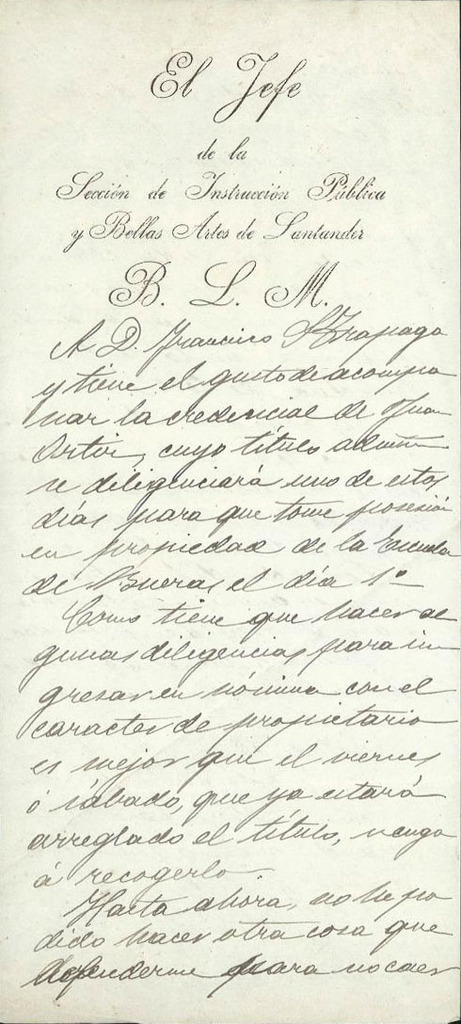 El Jefe
de la
Sección de Instrucción Pública
y Bellas Artes de Santander
B. L. M.
A D. Francisco S. Trapaga
y tiene el gusto de acompa
ñar la credencial de Juan
Ortiz, cuyo título admin
se diligenciará uno de estos
días para que tome posesión
en propiedad de la Escuela
de Bueras el día 1º
Como tiene que hacer al
gunas diligencias para in
gresar en nómina con el
caracter de propietario
es mejor que el viernes
ó sábado, que ya estará
arreglado el título, venga
á recogerlo.
Hasta ahora, no he po
dido hacer otra cosa que
defenderme para no caer